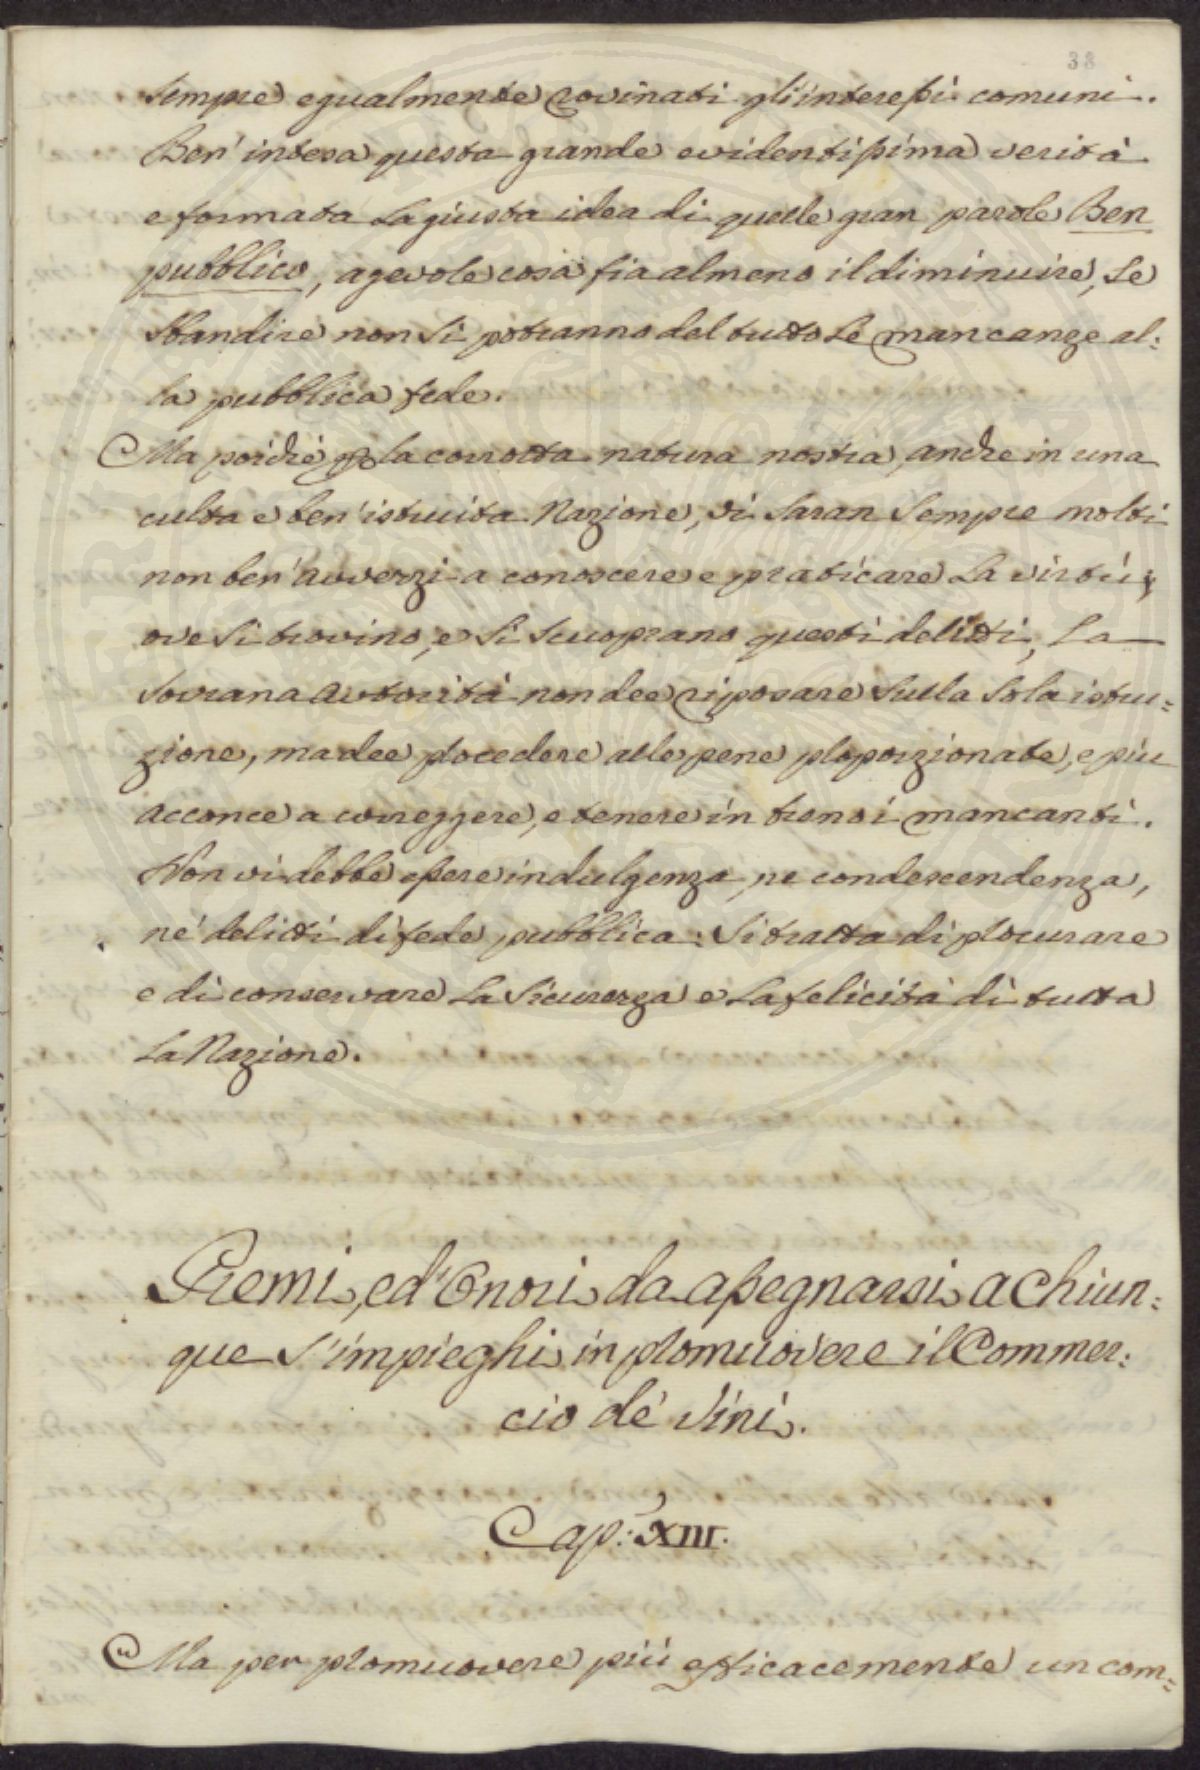 38
sempre egualmente rovinati gl'interessi comuni.
Ben' intesa questa grande evidentissima verità
e formata la giusta idea di quelle gran parole Ben
pubblico, agevole cosa fia almeno il diminuire, se
sbandire non si potranno del tutto le mancanze al:
la pubblica fede.
Ma poiché per la corrotta natura nostra, anche in una
culta e ben' istruita Nazione, vi saran sempre molti
non ben' avvezzi a conoscere e praticare la virtù;
ove si trovino, e si scuoprano questi delitti, la
sovrana autorità non dee riposare sulla sola istru:
zione, ma dee procedere alle pene proporzionate, e più
acconce a correggere, e tenere in freno i mancanti.
Non vi debbe essere indulgenza, ne condescendenza,
né delitti di fede pubblica: Si tratta di procurare
e di conservare la sicurezza e la felicità di tutta
la Nazione.
Premi, ed' Onori da assegnarsi a Chiun:
que s'impieghi in promuovere il Commer:
cio de' Vini.
Cap: XIII.
Ma per promuovere più efficacemente un com: